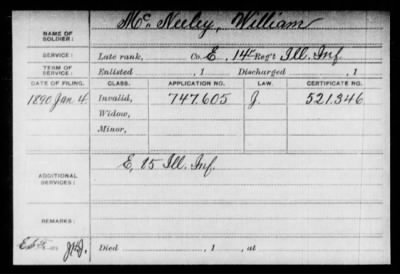 NAME OF SOLDIER: Mc Neeley, William
SERVICE: Late rank, Co. E, 14 Reg't Ill. Inf.
TERM OF SERVICE: Enlisted , 1 Discharged , 1
DATE OF FILING. CLASS. APPLICATION NO. LAW. CERTIFICATE NO.
1890 Jan. 4. Invalid, 747.605 J. 521.346
Widow,
Minor,
ADDITIONAL SERVICES: E, 15 Ill. Inf.
REMARKS:
Died , 1 , at